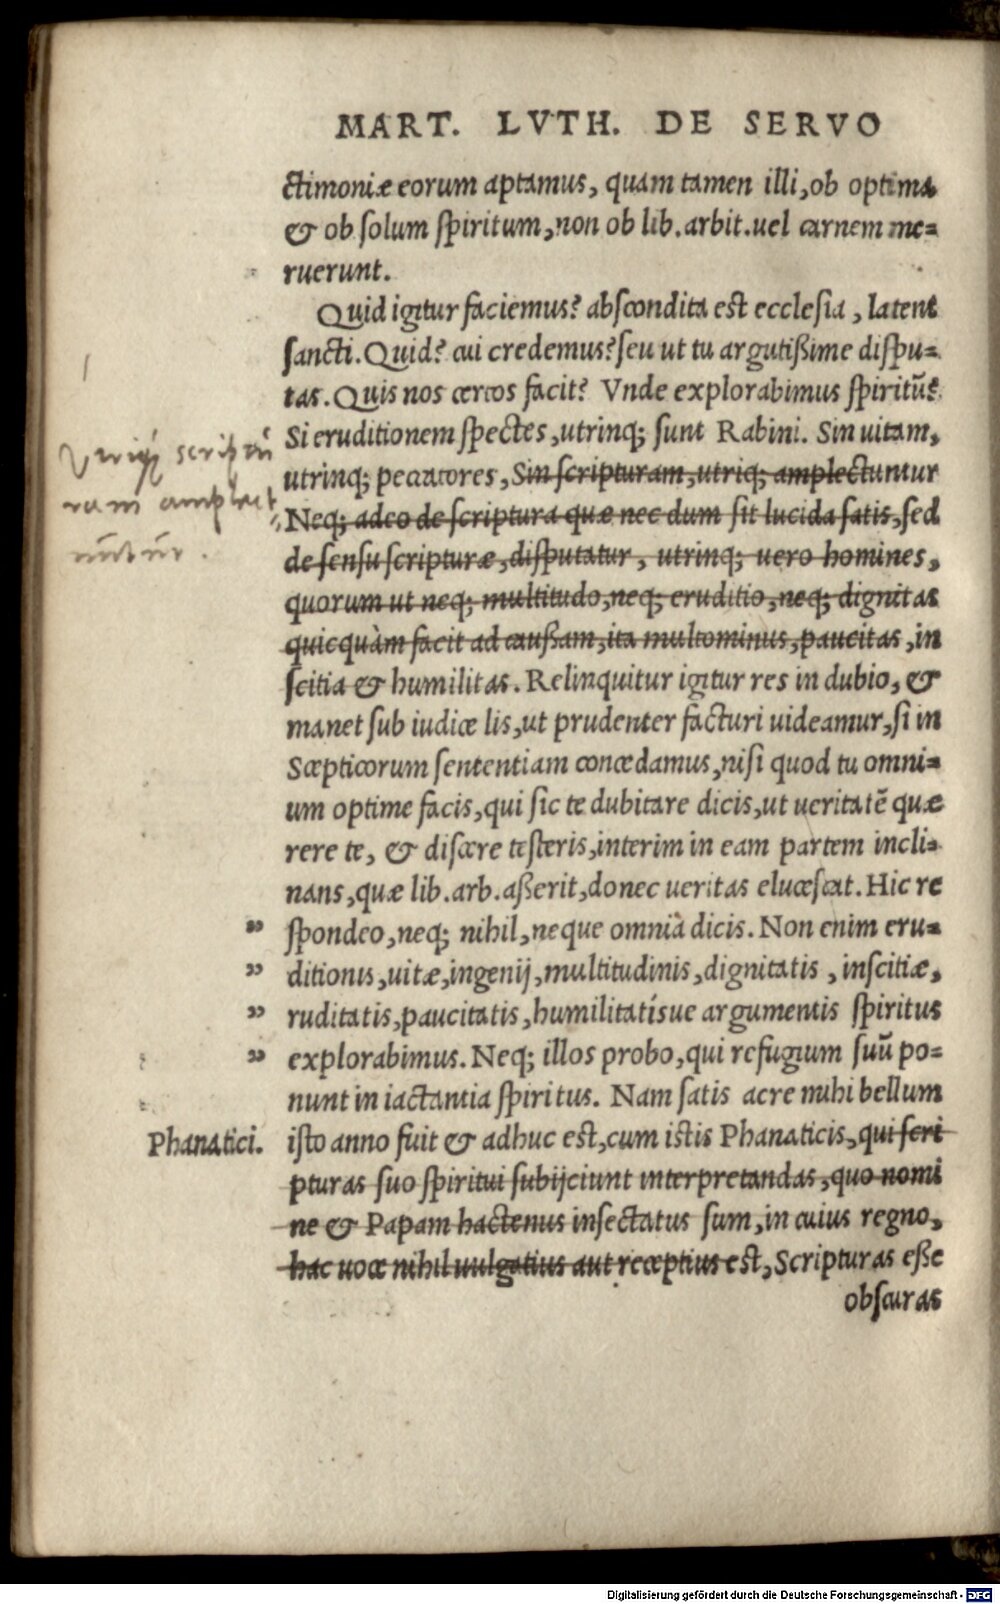 MART. LVTH. DE SERVO
ctimoniæ eorum aptamus, quam tamen illi, ob optima
& ob solum spiritum, non ob lib. arbit. uel carnem me=
ruerunt.
Quid igitur faciemus? abscondita est ecclesia, latent
sancti. Quid? cui credemus? seu ut tu argutißime dispu=
tas. Quis nos certos facit? Vnde explorabimus spiritũ?
Si eruditionem spectes, utrinq; sunt Rabini. Sin uitam,
utrinq; peccatores, Sin scripturam, utriq; amplectuntur
Neq; adeo de scriptura quæ nec dum sit lucida satis, sed
de sensu scripturæ, disputatur, utrinq; uero homines,
quorum ut neq; multitudo, neq; eruditio, neq; dignitas
quicquàm facit ad caußam, ita multominus, paucitas, in
scitia & humilitas. Relinquitur igitur res in dubio, &
manet sub iudice lis, ut prudenter facturi uideamur, si in
Scepticorum sententiam concedamus, nisi quod tu omni=
um optime facis, qui sic te dubitare dicis, ut ueritatẽ quæ
rere te, & discere testeris, interim in eam partem incli=
nans, quæ lib. arb. aßerit, donec ueritas elucescat. Hic re
„ spondeo, neq; nihil, neque omnia dicis. Non enim eru=
„ ditionis, uitæ, ingenij, multitudinis, dignitatis, inscitiæ,
„ ruditatis, paucitatis, humilitatísue argumentis spiritus
„ explorabimus. Neq; illos probo, qui refugium suũ po=
nunt in iactantia spiritus. Nam satis acre mihi bellum
Phanatici. isto anno fuit & adhuc est, cum istis Phanaticis, qui scri
pturas suo spiritui subijciunt interpretandas, quo nomi
ne & Papam hactenus insectatus sum, in cuius regno,
hac uoce nihil uulgatius aut receptius est, Scripturas eße
obscuras
Vtriq; scriptu
ram amplect
untur.
Digitalisierung gefördert durch die Deutsche Forschungsgemeinschaft - DFG